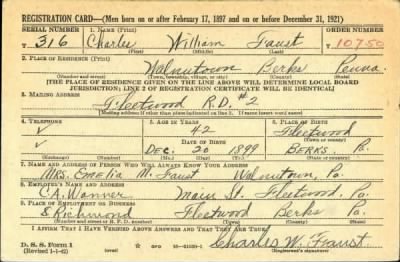 REGISTRATION CARD—(Men born on or after February 17, 1897 and on or before December 31, 1921)
SERIAL NUMBER 1. NAME (Print) ORDER NUMBER
T 316 Charles William Faust T 10750
(First) (Middle) (Last)
2. PLACE OF RESIDENCE (Print)
Walnutown Berks Penna
(Number and street) (Town, township, village, or city) (County) (State)
[THE PLACE OF RESIDENCE GIVEN ON THE LINE ABOVE WILL DETERMINE LOCAL BOARD
JURISDICTION; LINE 2 OF REGISTRATION CERTIFICATE WILL BE IDENTICAL]
3. MAILING ADDRESS
Fleetwood R.D. #2
[Mailing address if other than place indicated on line 2. If same insert word same]
4. TELEPHONE 5. AGE IN YEARS 6. PLACE OF BIRTH
✓ 42 Fleetwood
DATE OF BIRTH (Town or county)
✓ DEC. 20 1899 BERKS Pa.
(Exchange) (Number) (Mo.) (Day) (Yr.) (State or country)
7. NAME AND ADDRESS OF PERSON WHO WILL ALWAYS KNOW YOUR ADDRESS
MRS. Emelia M. Faust Walnutown, Pa.
8. EMPLOYER'S NAME AND ADDRESS
C.A. Wanner Main St. Fleetwood, Pa.
9. PLACE OF EMPLOYMENT OR BUSINESS
S. Richmond Fleetwood Berks Pa.
(Number and street or R. F. D. number) (Town) (County) (State)
I AFFIRM THAT I HAVE VERIFIED ABOVE ANSWERS AND THAT THEY ARE TRUE.
D. S. S. Form 1
(Revised 1-1-42) (over) ☆ GPO 16—21630-1 Charles W. Faust
(Registrant's signature)